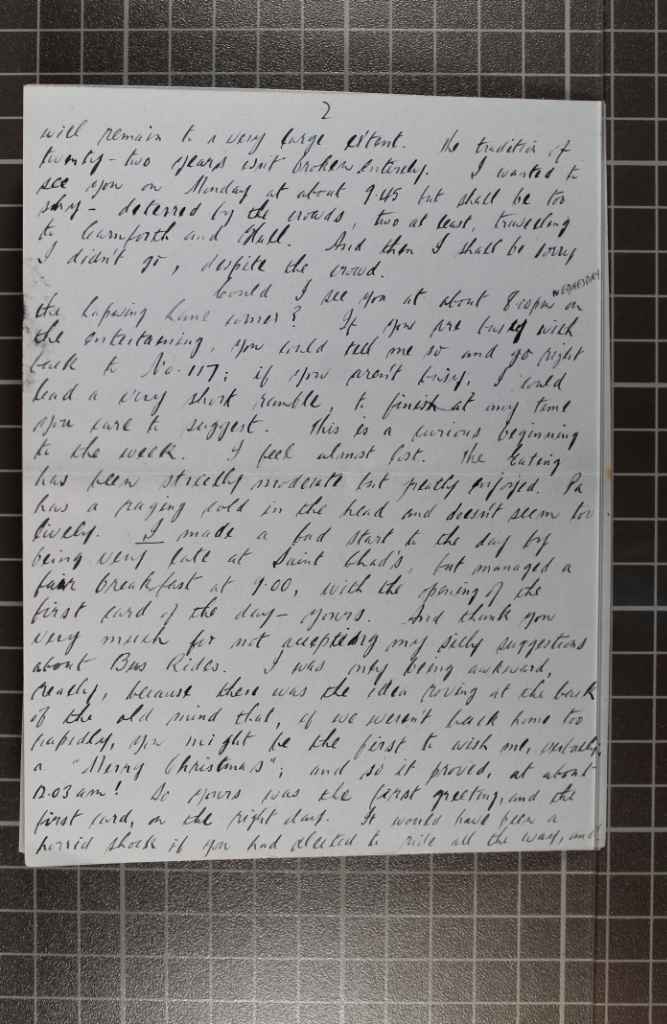 2
will remain to a very large extent. The tradition of
twenty-two years isn't broken entirely. I wanted to
see you on Monday at about 9.45 but shall be too
shy - deterred by the crowds, two at least, travelling
to Carnforth and Hull. And then I shall be sorry
I didn't go, despite the crowd.
Could I see you at about 8.00pm WEDNESDAY on
the Lapwing Lane corner? If you are busy with
the entertaining, you could tell me so and go right
back to No. 117; if you aren't busy, I could
lead a very short ramble, to finish at any time
you care to suggest. This is a curious beginning
to the week. I feel almost lost. The Eating
has been strictly moderate but greatly enjoyed. Pa
has a raging cold in the head and doesn't seem too
lively. I made a bad start to the day by
being very late at Saint Chad's, but managed a
fair breakfast at 9.00, with the opening of the
first card of the day - yours. And thank you
very much for not accepting my silly suggestions
about Bus Rides. I was only being awkward,
really, because there was the idea roving at the back
of the old mind that, if we weren't back home too
rapidly, you might be the first to wish me, verbally,
a "Merry Christmas"; and so it proved, at about
12.03 am! So yours was the first greeting, and the
first card, on the right day. It would have been a
horrid shock if you had elected to ride all the way, and